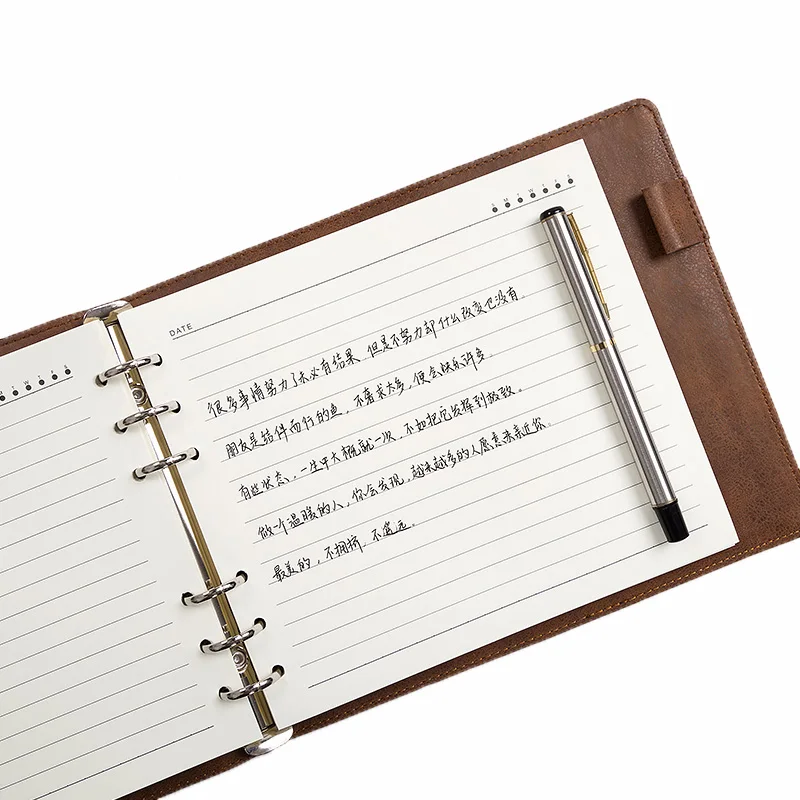 S M T W T F S
DATE
很多事情努力了未必有结果，但是不努力却什么改变也没有。
朋友是结伴而行的鱼，不奢求太多，便会快乐许多。
有些状态，一生中大概就一次，不如把它发挥到极致。
做一个温暖的人，你会发现，越来越多的人愿意来亲近你。
最美的，不拥挤，不遥远。